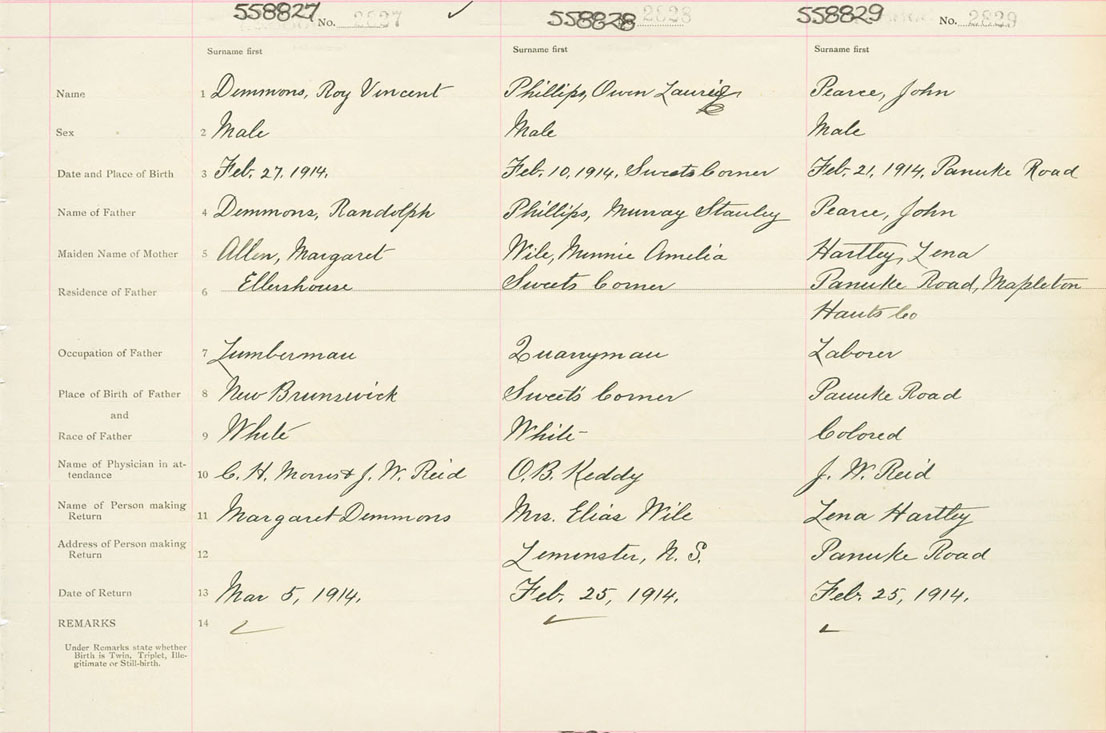 558827 No. 2827 558828 2828 558829 No. 2829
Surname first Surname first Surname first
Name 1 Demmons, Roy Vincent Phillips, Owen Laurie Pearce, John
Sex 2 Male Male Male
Date and Place of Birth 3 Feb. 27, 1914. Feb. 10, 1914, Sweets Corner Feb. 21, 1914, Panuke Road
Name of Father 4 Demmons, Randolph Phillips, Murray Stanley Pearce, John
Maiden Name of Mother 5 Allen, Margaret Wile, Minnie Amelia Hartley, Lena
Residence of Father 6 Ellershouse Sweets Corner Panuke Road, Mapleton
Hants Co
Occupation of Father 7 Lumberman Quarryman Laborer
Place of Birth of Father 8 New Brunswick Sweet's Corner Panuke Road
and
Race of Father 9 White White Colored
Name of Physician in at-
tendance 10 C. H. Morris & J. W. Reid O. B. Keddy J. W. Reid
Name of Person making
Return 11 Margaret Demmons Mrs. Elias Wile Lena Hartley
Address of Person making
Return 12 Leminster, N. S. Panuke Road
Date of Return 13 Mar 5, 1914. Feb. 25, 1914. Feb. 25, 1914.
REMARKS 14
Under Remarks state whether
Birth is Twin, Triplet, Ille-
gitimate or Still-birth.